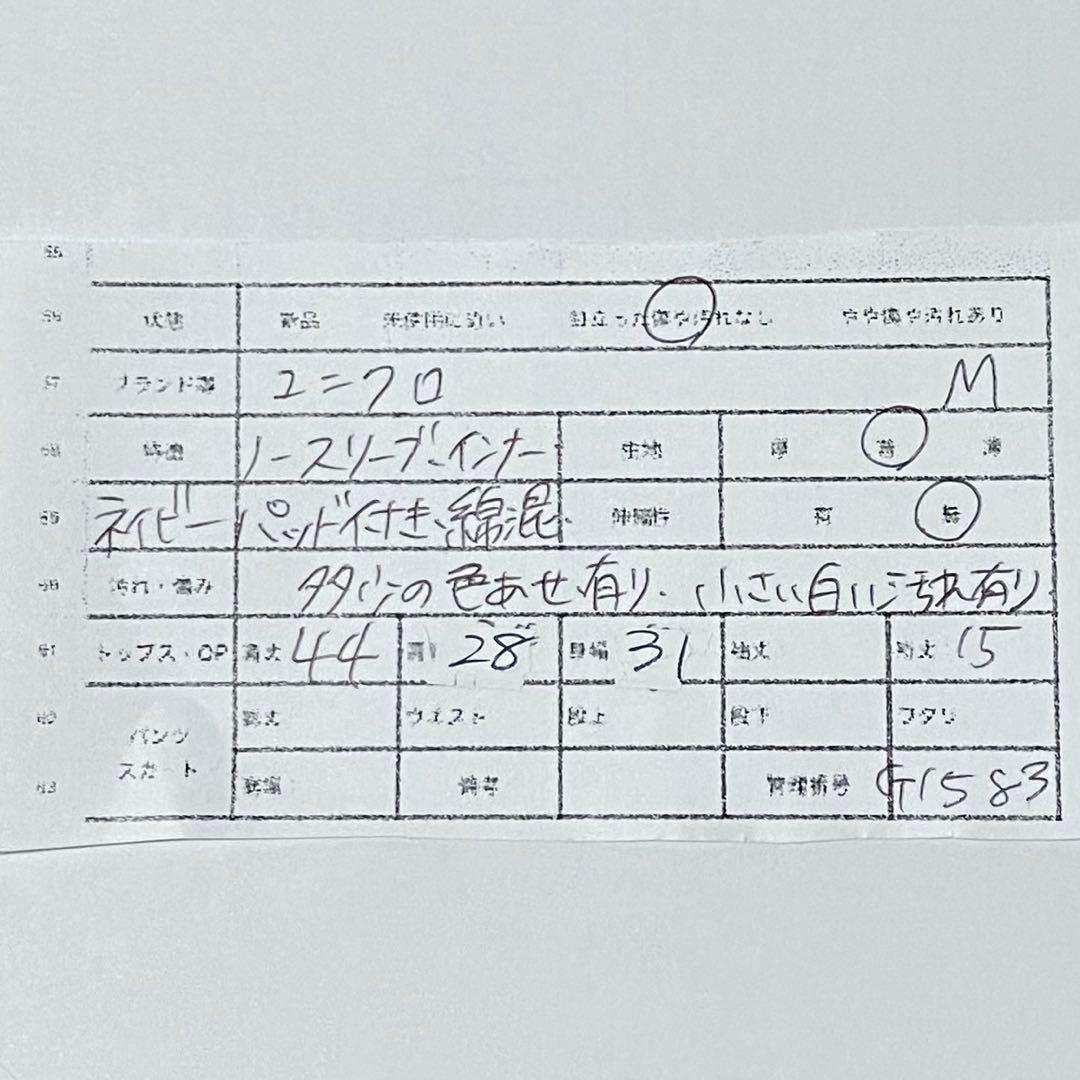 状態 新品 未使用に近い 目立った傷や汚れなし やや傷や汚れあり
ブランド名 ユニクロ M
特徴 ノースリーブ、インナー 生地 厚 普 薄
ネイビー パッド付き、綿混、 伸縮性 有 無
汚れ・傷み タタリンの色あせ、有り、小さい白い汚れ有り
トップス・OP 着丈 44 肩 28 身幅 31 袖丈 15
パンツ スカート 総丈 ウエスト 股上 股下 ワタリ
裾幅 備考 管理番号 G1583